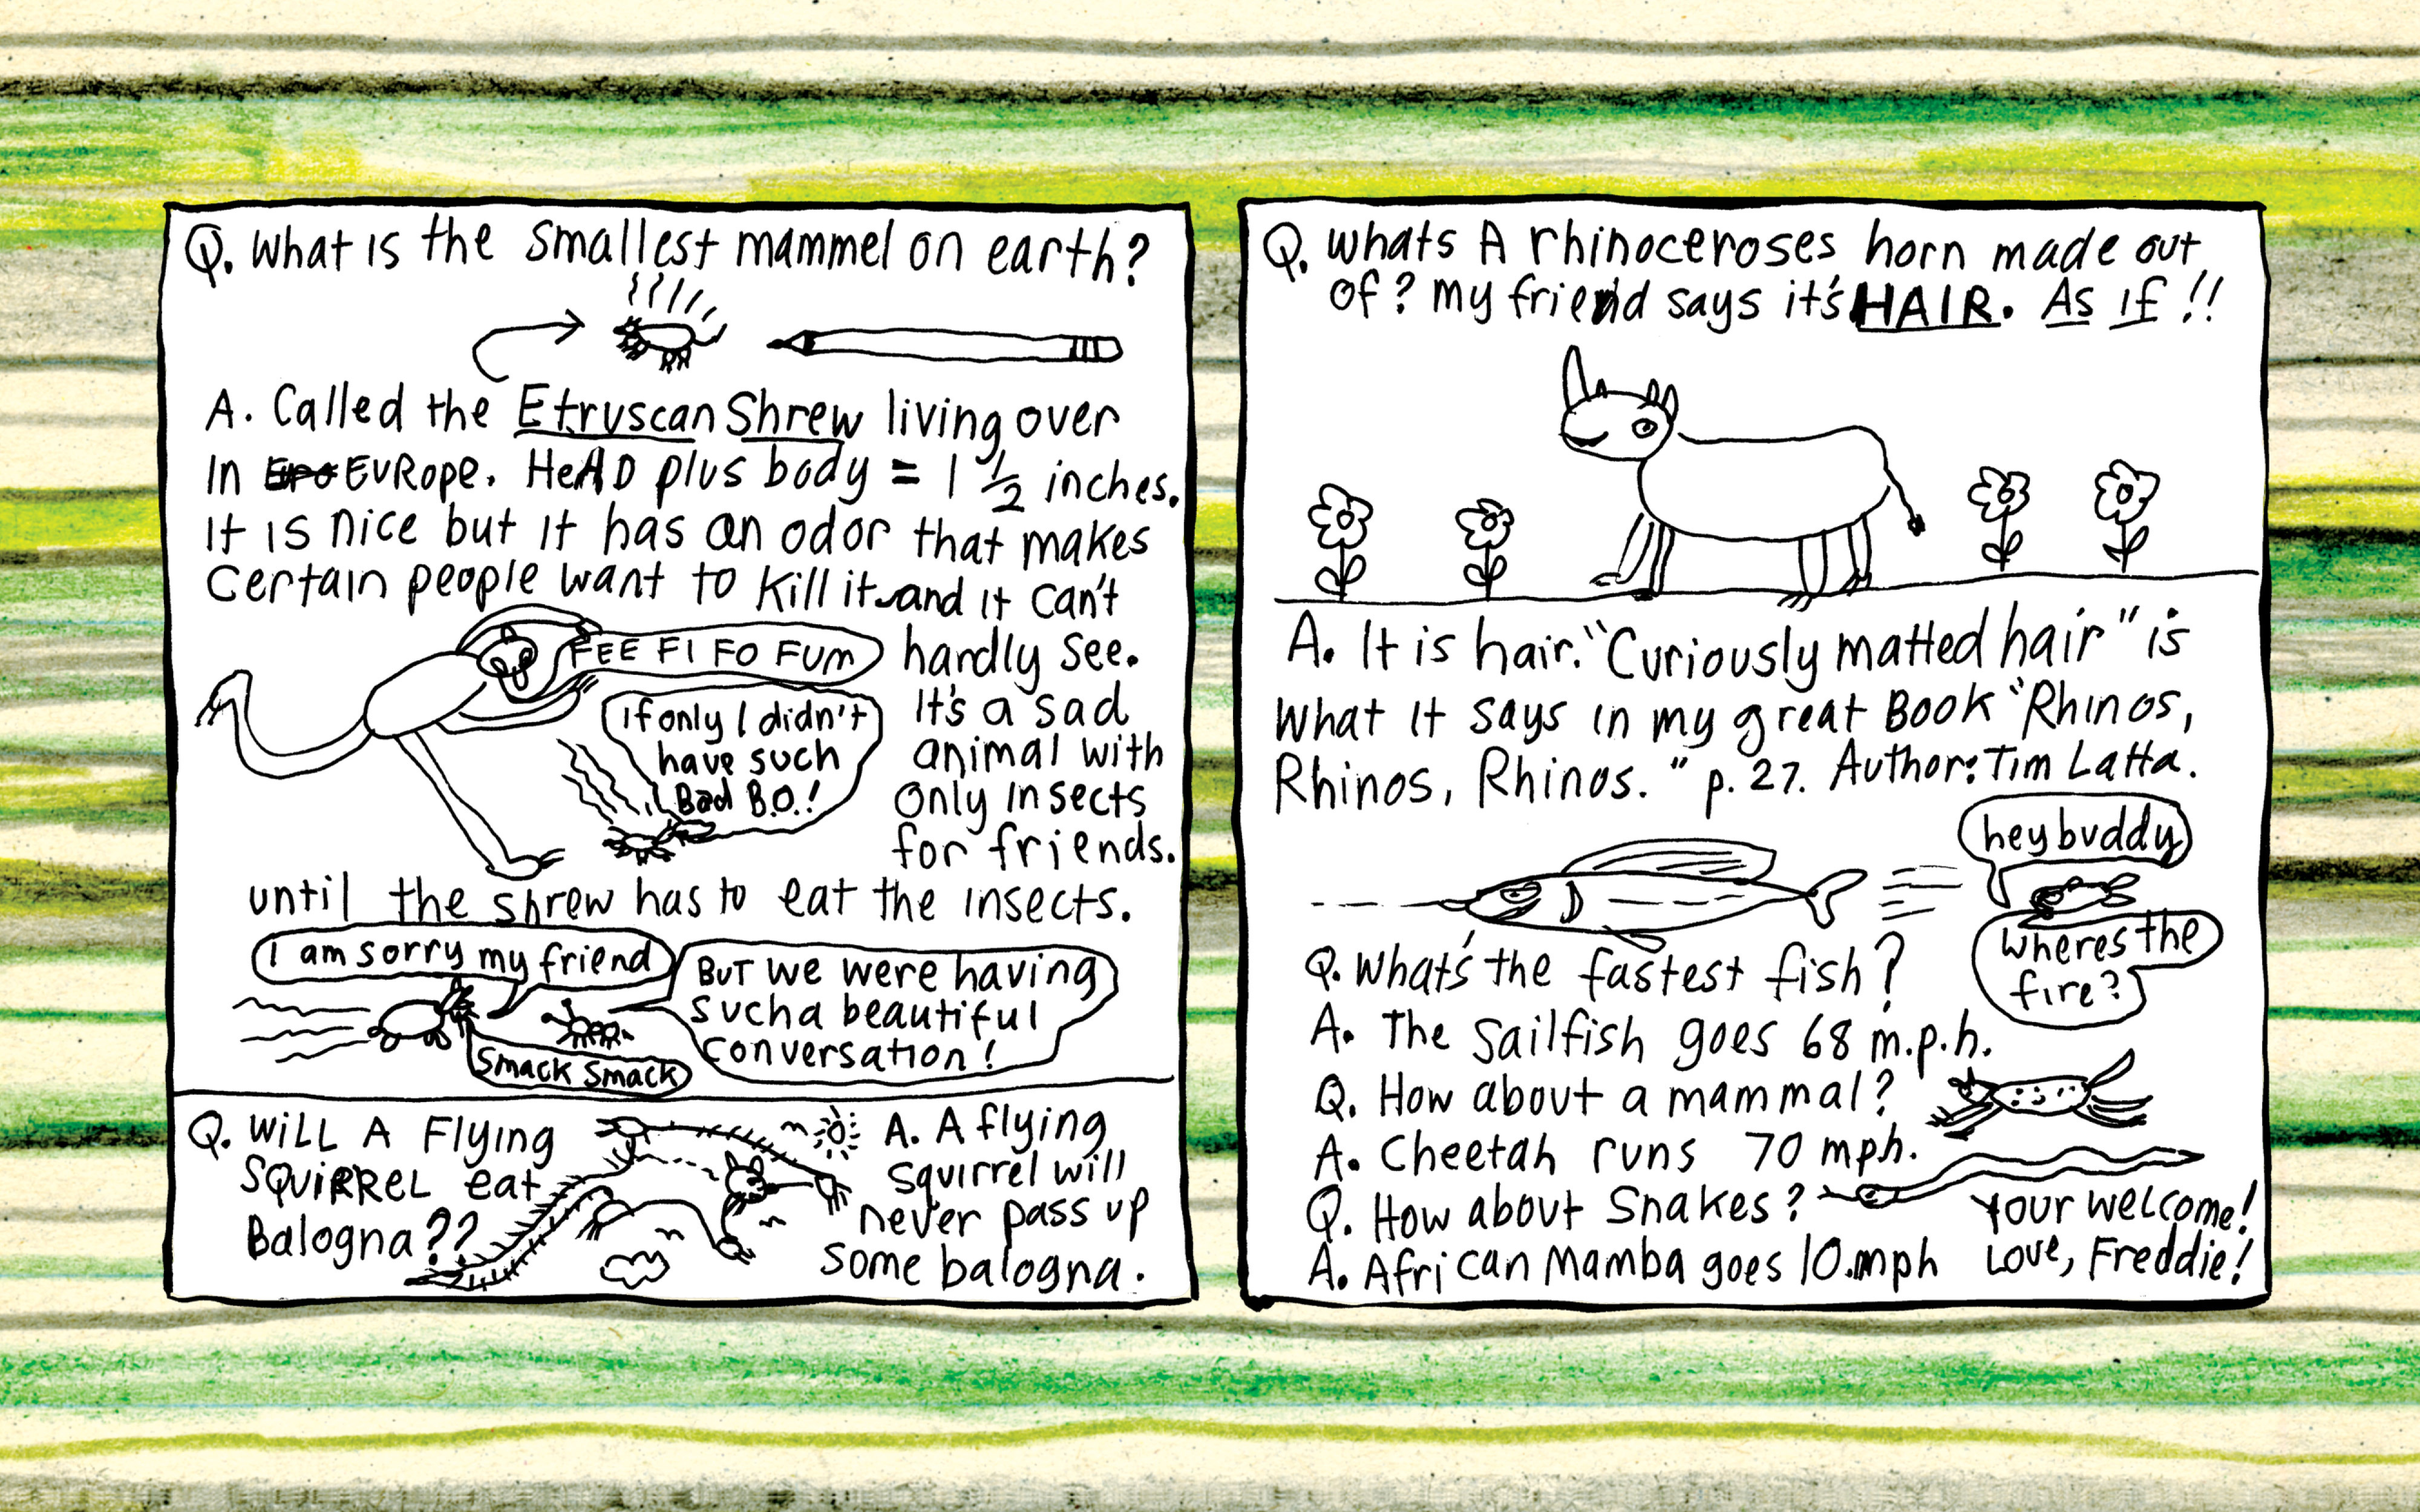 Q. What is the smallest mammel on earth?
A. Called the Etruscan Shrew living over
in Europe. Head plus body = 1 1/2 inches.
It is nice but it has an odor that makes
certain people want to kill it and it can't
hardly see.
It's a sad
animal with
only insects
for friends.
FEE FI FO FUM
If only I didn't
have such
Bad B.O.!
until the shrew has to eat the insects.
I am sorry my friend
Smack Smack
But we were having
sucha beautiful
conversation!
Q. Will A Flying
SQUIRREL eat
Balogna??
A. A flying
squirrel will
never pass up
some balogna.
Q. whats A rhinoceroses horn made out
of? my friend says it's HAIR. As if!!
A. It is hair. "Curiously matted hair" is
what it says in my great Book "Rhinos,
Rhinos, Rhinos." p. 27. Author: Tim Latta.
hey buddy
wheres the
fire?
Q. What's the fastest fish?
A. The Sailfish goes 68 m.p.h.
Q. How about a mammal?
A. Cheetah runs 70 mph.
Q. How about Snakes?
A. African Mamba goes 10.mph
Your welcome!
Love, Freddie!